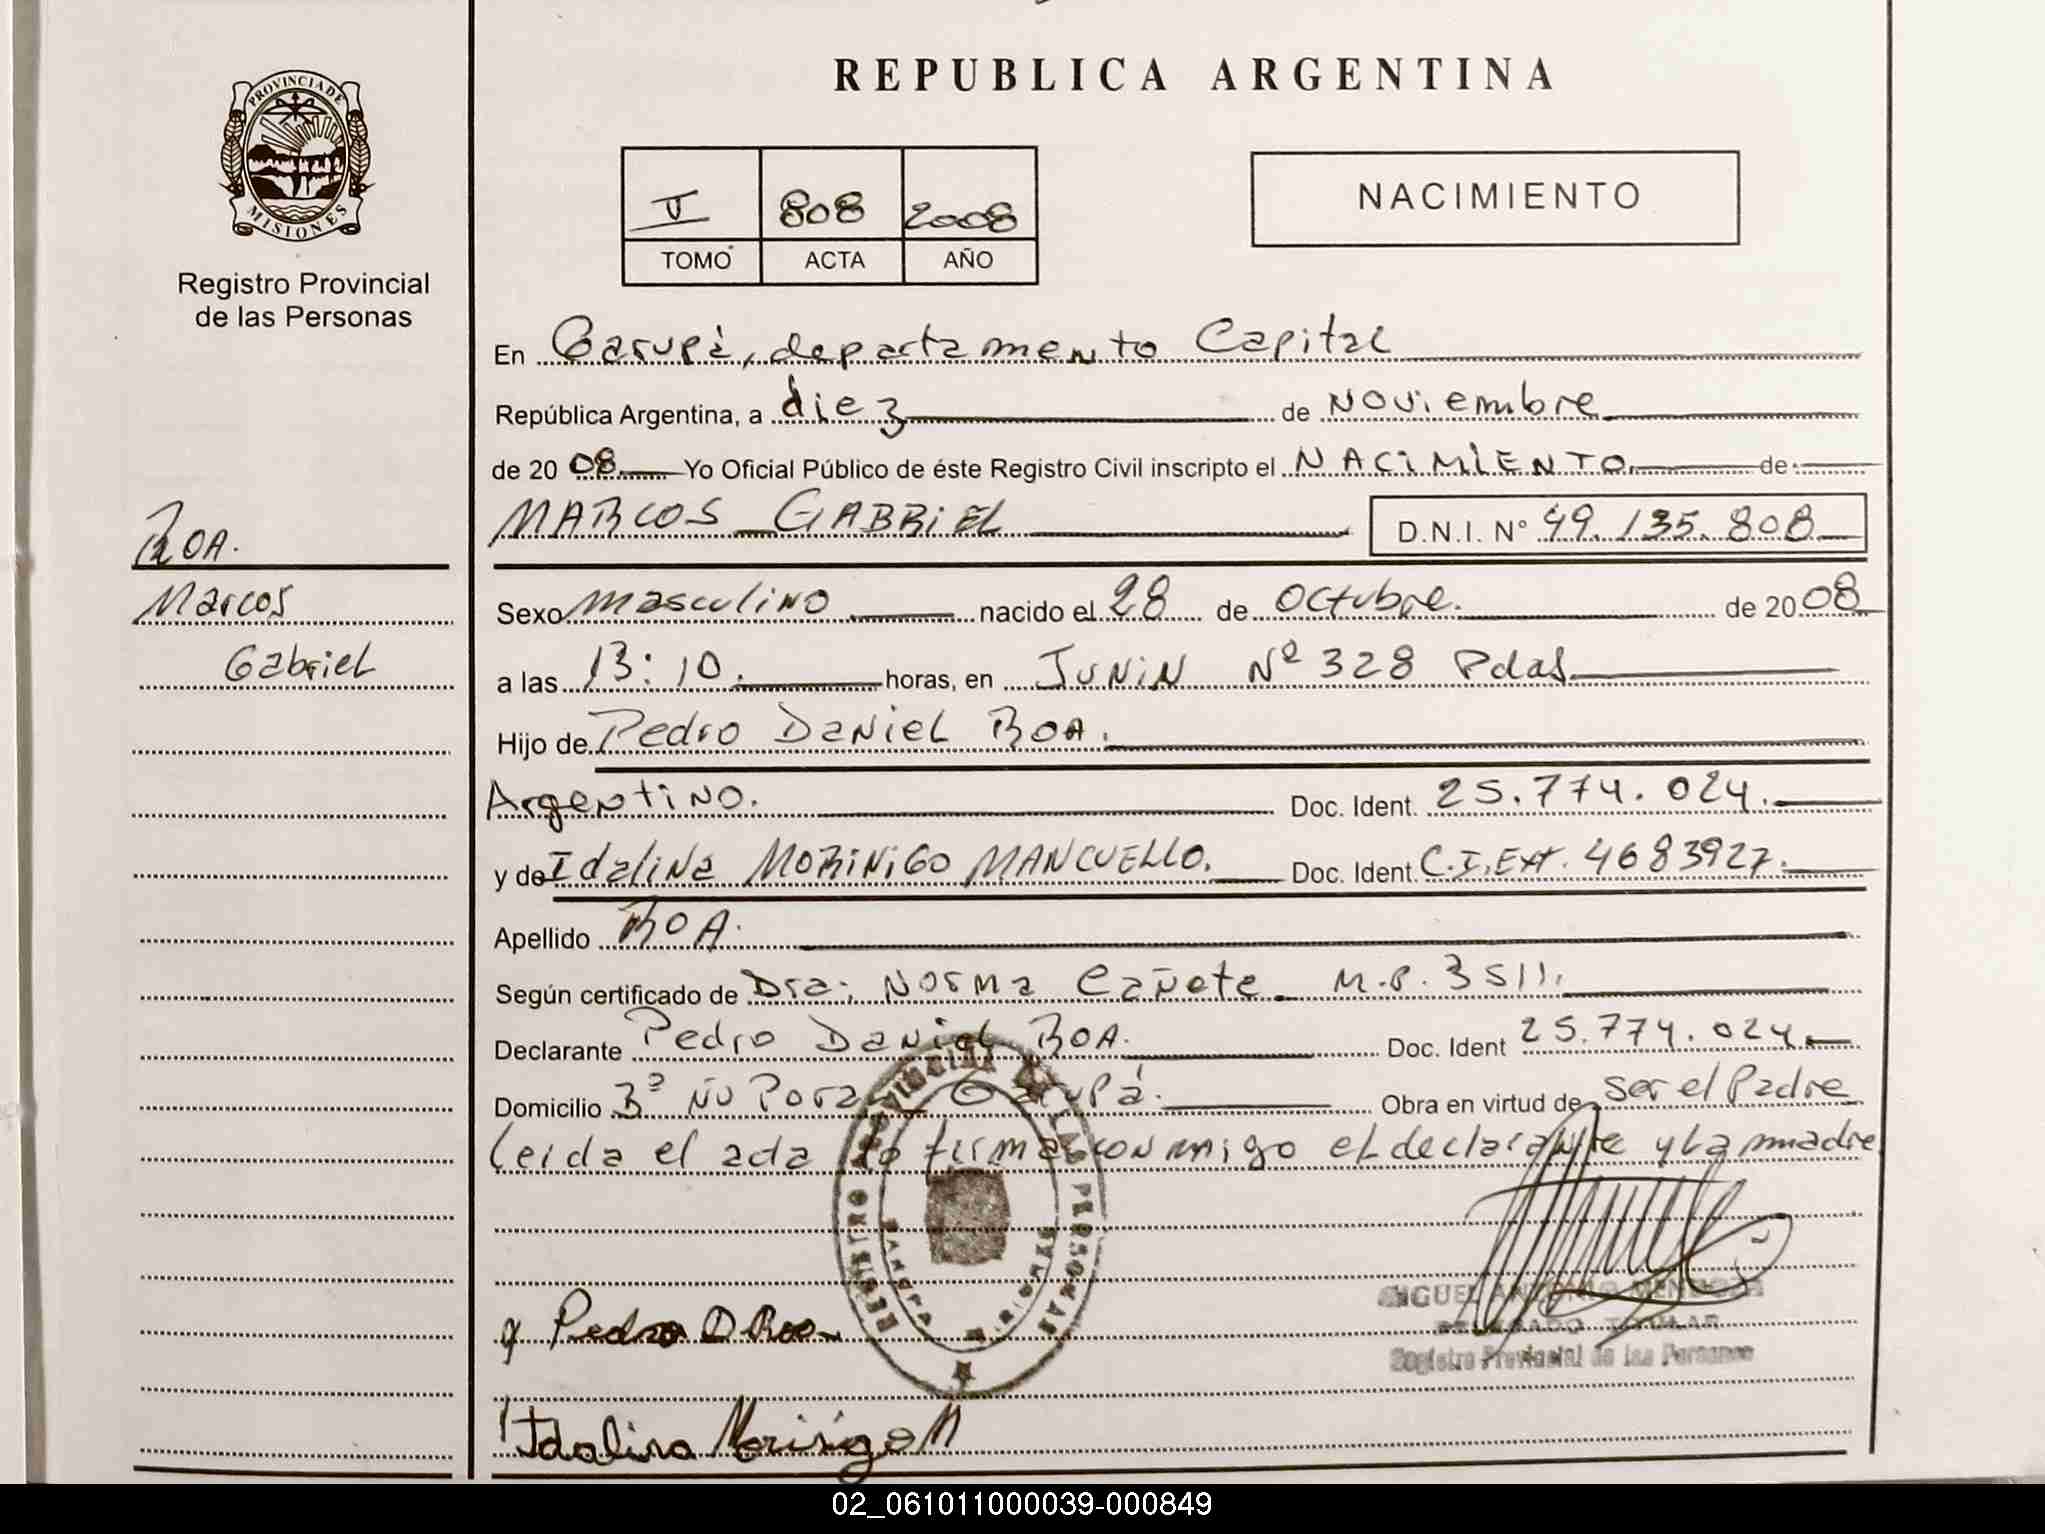 PROVINCIA DE
MISIONES
Registro Provincial
de las Personas
ROA.
Marcos
Gabriel
REPUBLICA ARGENTINA
II 808 2008
TOMO ACTA AÑO
NACIMIENTO
En Garupá, departamento Capital
República Argentina, a diez de Noviembre
de 2008 Yo Oficial Público de éste Registro Civil inscripto el NACIMIENTO de
MARCOS GABRIEL D.N.I. Nº 49.135.808
Sexo masculino nacido el 28 de Octubre. de 2008
a las 13:10. horas, en JUNIN Nº 328 Pdas
Hijo de Pedro Daniel ROA.
Argentino. Doc. Ident. 25.774.024.
y de Idalina MORINIGO MANCUELLO. Doc. Ident. C.I.Ext. 4683927.
Apellido ROA.
Según certificado de Dra. Norma Cañete M.P. 3511.
Declarante Pedro Daniel ROA. Doc. Ident 25.774.024.
Domicilio Bº Ñu Pora Garupá. Obra en virtud de ser el Padre
Leida el acta la firma conmigo el declarante y la madre
REGISTRO PROVINCIAL DE LAS PERSONAS
MIGUEL ANTONIO MENDOZA
DELEGADO TITULAR
Registro Provincial de las Personas
Pedro D Roa
Idalina Morinigo M
02_061011000039-000849